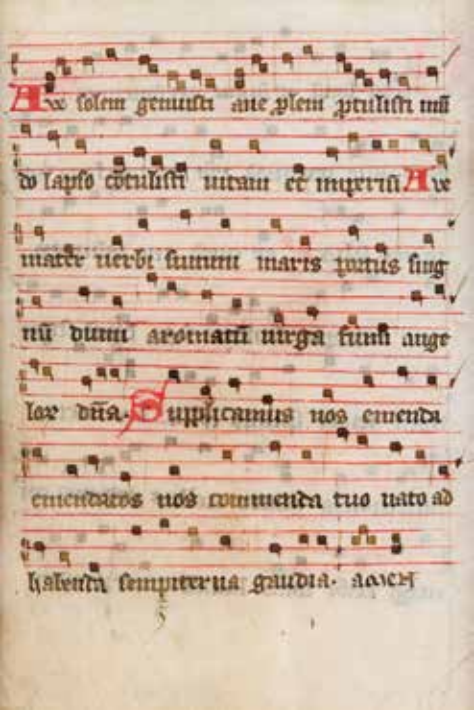 Aue solem genuisti aue plem ptulisti mū
do lapso cōtulisti uitam et imperiū Aue
mater uerbi summi maris portus sing
nū dumi aromatū uirga fumi ange
lox dn̄a. Supplicamus nos emenda
emendatos nos commenda tuo nato ad
habenda sempiterna gaudia. amen